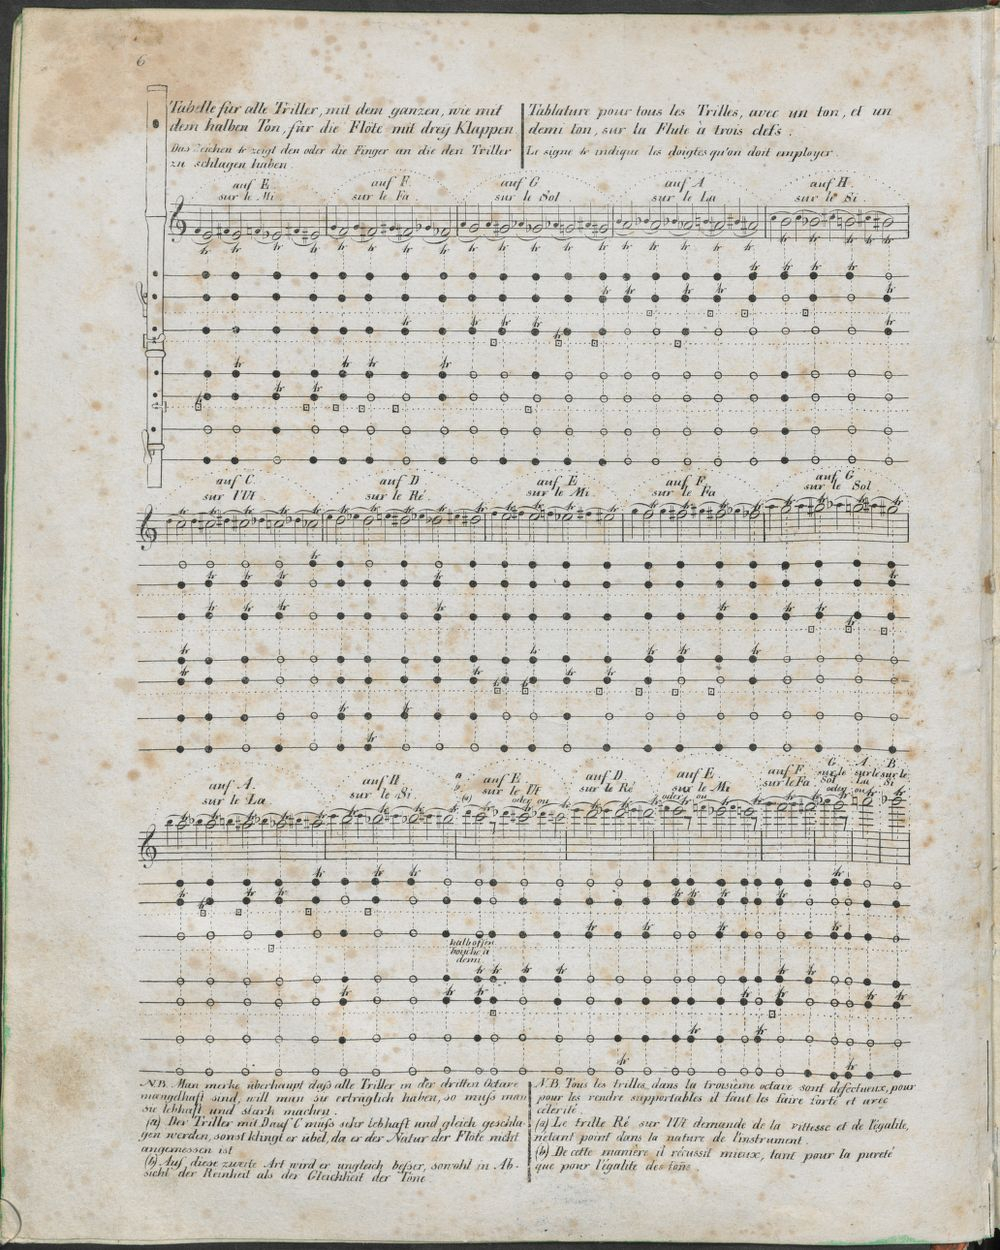 6
Tabelle für alle Triller, mit dem ganzen, wie mit
dem halben Ton, für die Flöte mit drey Klappen.
Das Zeichen tr zeigt den oder die Finger an die den Triller
zu schlagen haben.
Tablature pour tous les Trilles, avec un ton, et un
demi ton, sur la Flute à trois clefs.
Le signe tr indique les doigtes qu'on doit employer.
auf E auf F auf G auf A auf H
sur le Mi sur le Fa sur le Sol sur le La sur le Si
auf C auf D auf E auf F auf G
sur l'Ut sur le Ré sur le Mi sur le Fa sur le Sol
auf A auf H auf E auf D auf E auf F G A B
sur le La sur le Si sur le Ut sur le Ré sur le Mi sur le Fa sur le Sol sur le La sur le Si
(a) oder ou oder ou oder ou
halb offen
bouché à
demi
N.B. Man merke überhaupt daß alle Triller in der dritten Octave
mangelhaft sind, will man sie erträglich haben, so muß man
sie lebhaft und stark machen.
(a) Der Triller mit D auf C muß sehr lebhaft und gleich geschla-
gen werden, sonst klingt er übel, da er der Natur der Flöte nicht
angemessen ist
(b) Auf diese zweite Art wird er ungleich beßer, sowohl in Ab-
sicht der Reinheit als der Gleichheit der Töne
N.B Tous les trilles, dans la troisième octave sont défectueux, pour
pour les rendre supportables il faut les faire forté et avec
célerité.
(a) Le trille Ré sur l'Ut demande de la vittesse et de l'égalité,
n'étant point dans la nature de l'instrument.
(b) De cette manière il réussit mieux, tant pour la pureté
que pour l'égalité des sons.